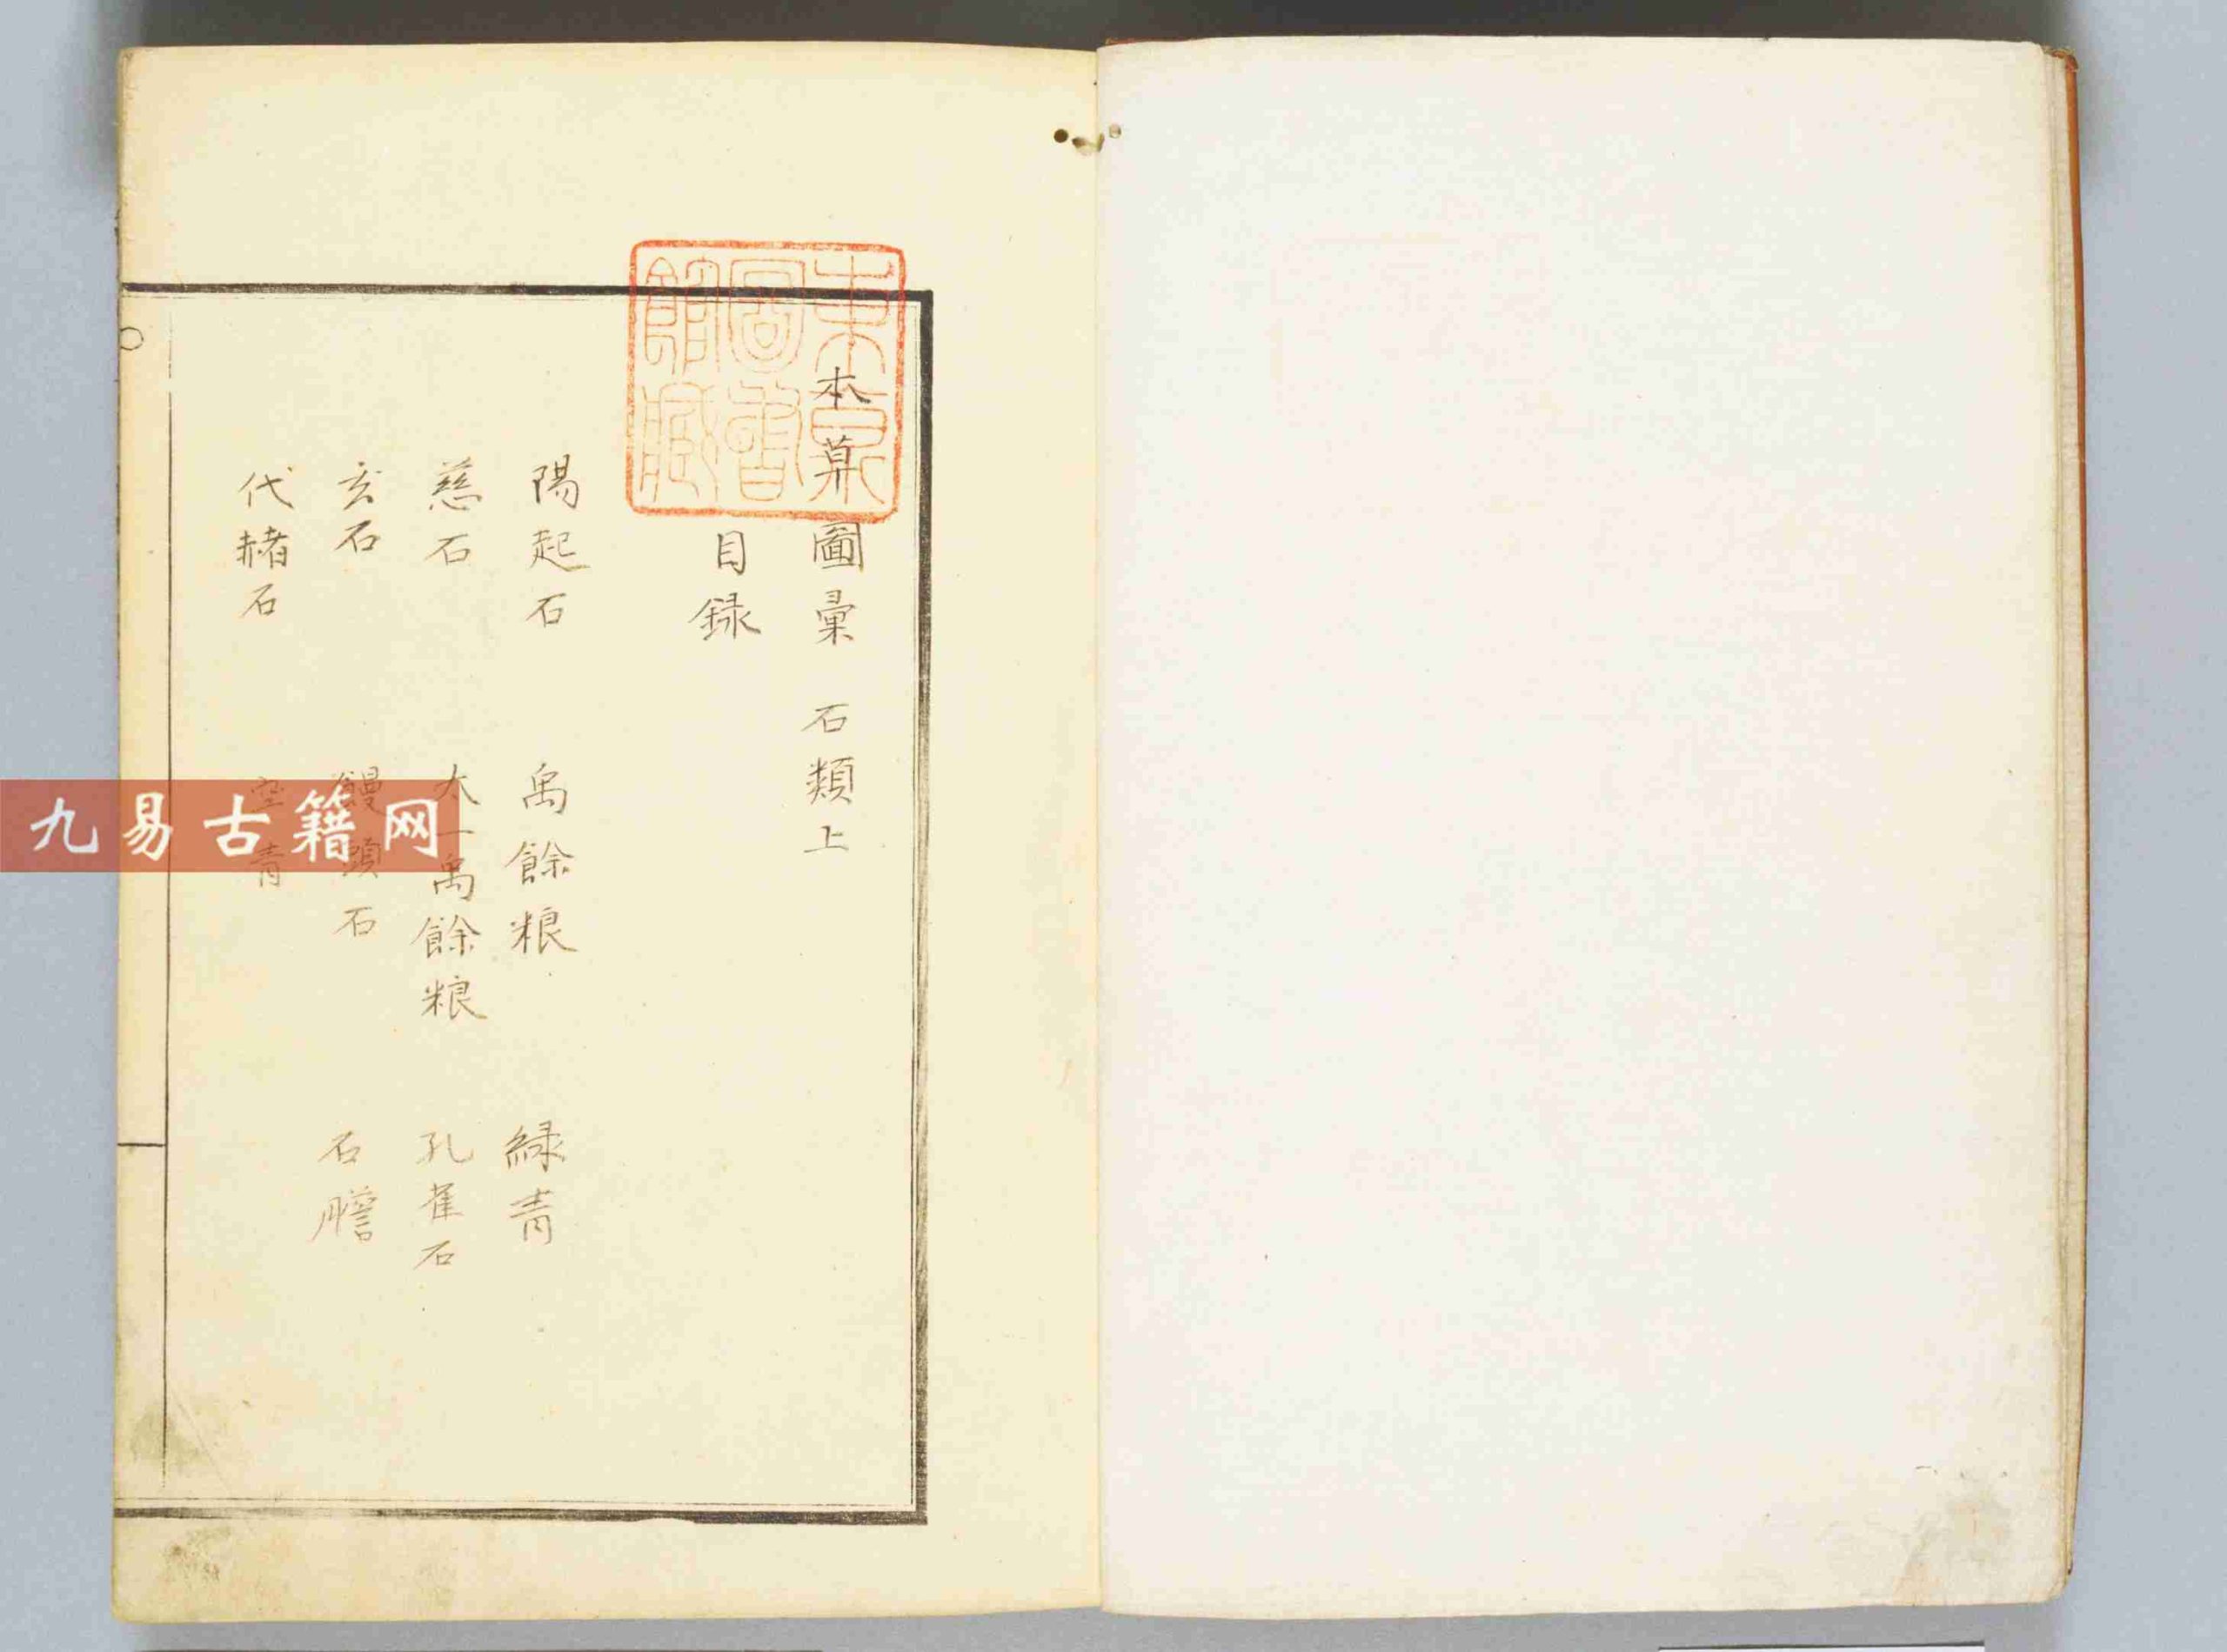 東京
圖書
館藏
本草圖彙 石類上
目録
陽起石 禹餘粮 緑青
慈石 太一禹餘粮 孔雀石
玄石 饅頭石 石膽
代赭石 空青
九易古籍网